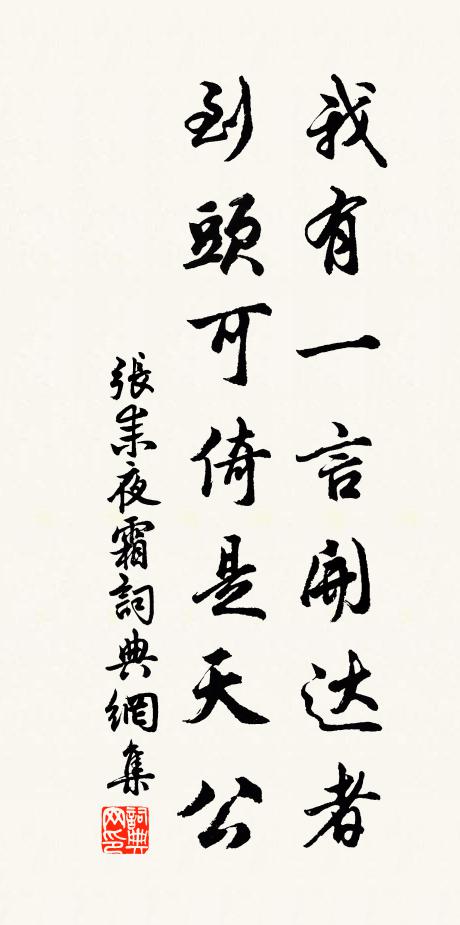 我有一言開达者
到頭可倚是天公
張耒夜霜詞典網集
詞典网印